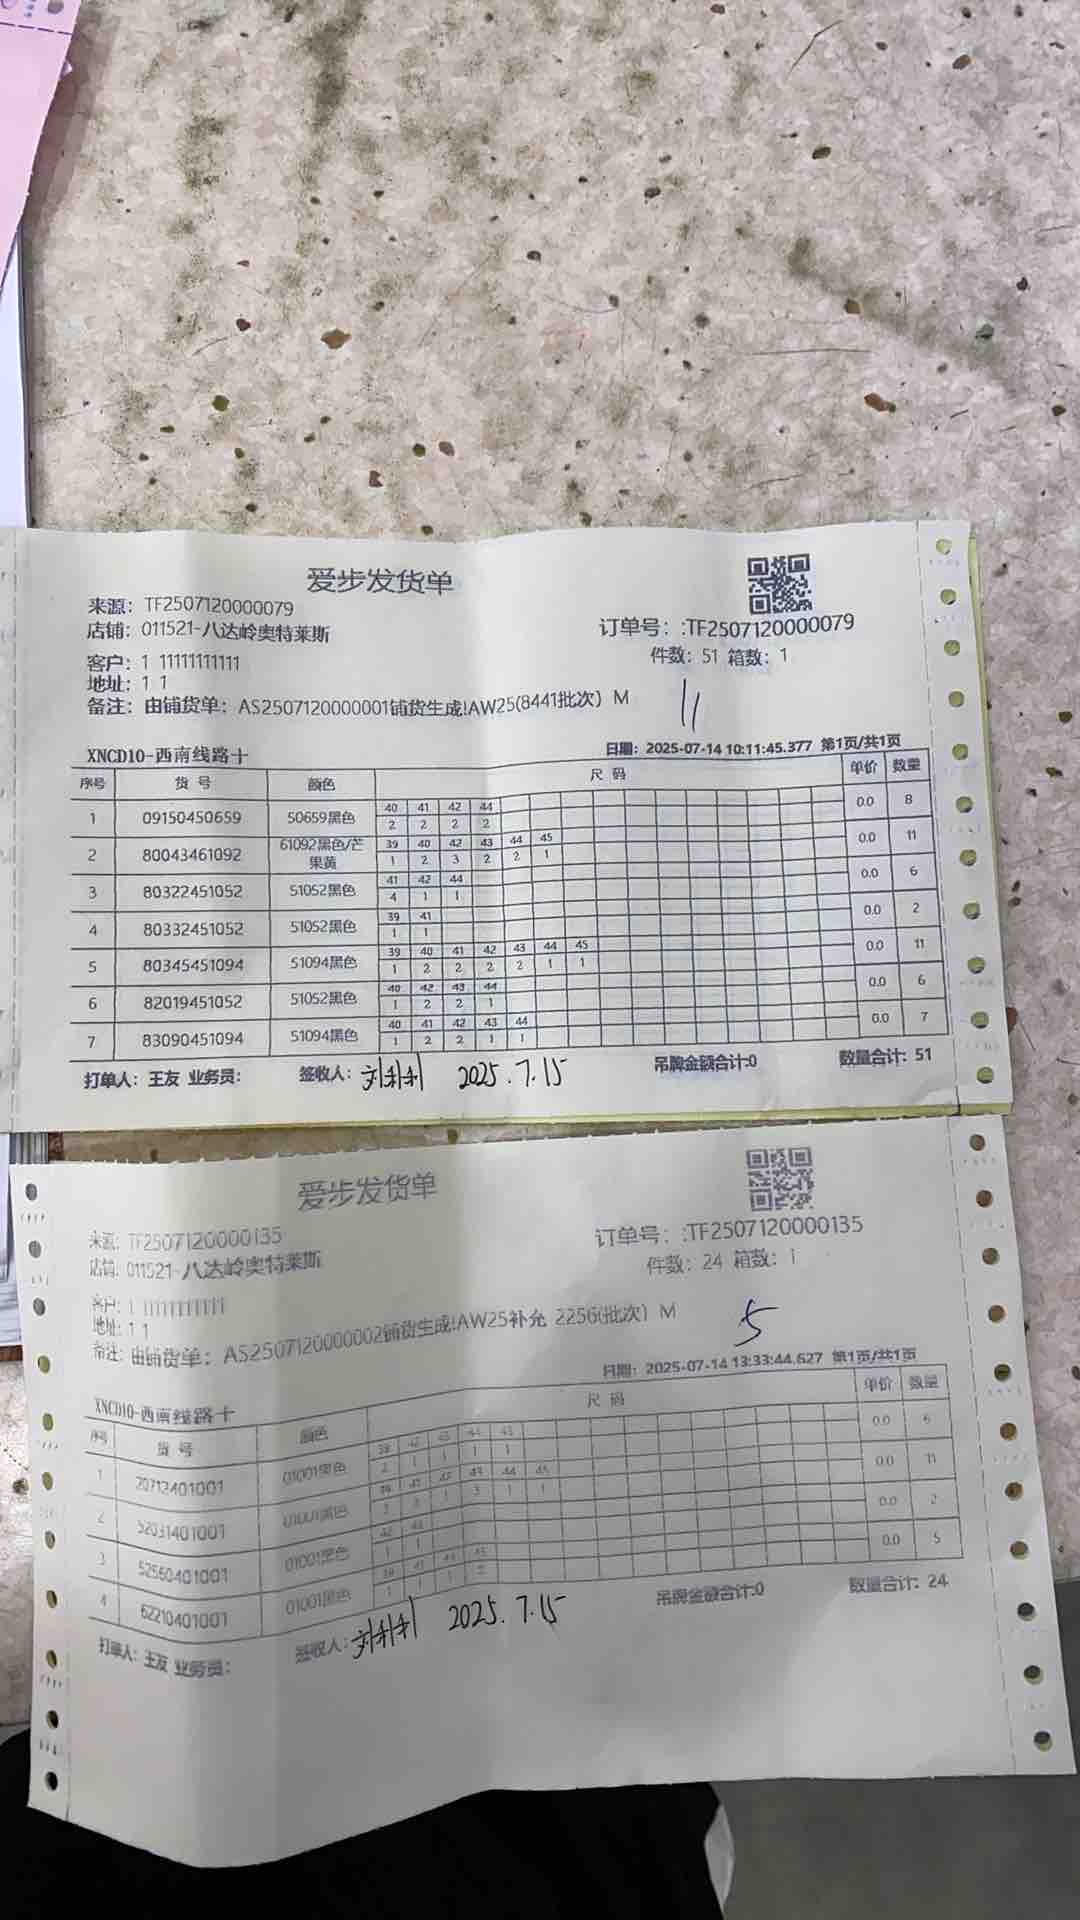 爱步发货单
来源：TF2507120000079
店铺：011521-八达岭奥特莱斯
订单号：:TF2507120000079
件数：51 箱数：1
客户：1 11111111111
地址：1 1
备注：由铺货单：AS2507120000001铺货生成!AW25(8441批次) M
11
XNCD10-西南线路十
日期：2025-07-14 10:11:45.377 第1页/共1页
序号 货号 颜色 尺码 单价 数量
40 41 42 44
1 09150450659 50659黑色 2 2 2 2 0.0 8
39 40 42 43 44 45
2 80043461092 61092黑色/芒果黄 1 2 3 2 2 1 0.0 11
41 42 44
3 80322451052 51052黑色 4 1 1 0.0 6
39 41
4 80332451052 51052黑色 1 1 0.0 2
39 40 41 42 43 44 45
5 80345451094 51094黑色 1 2 2 2 2 1 1 0.0 11
40 42 43 44
6 82019451052 51052黑色 1 2 2 1 0.0 6
40 41 42 43 44
7 83090451094 51094黑色 1 2 2 1 1 0.0 7
打单人：王友 业务员： 签收人：刘利利 2025.7.15 吊牌金额合计:0 数量合计：51
爱步发货单
来源：TF2507120000135
店铺：011521-八达岭奥特莱斯
订单号：:TF2507120000135
件数：24 箱数：1
客户：1 11111111111
地址：1 1
备注：由铺货单：AS2507120000002铺货生成!AW25补充 2256(批次) M
5
XNCD10-西南线路十
日期：2025-07-14 13:33:44.627 第1页/共1页
序号 货号 颜色 尺码 单价 数量
1 20713401001 01001黑色 2 1 1 1 1 0.0 6
43 44 45
2 52031401001 01001黑色 3 1 1 0.0 11
3 52560401001 01001黑色 1 1 0.0 2
4 62210401001 01001黑色 1 1 1 2 0.0 5
打单人：王友 业务员： 签收人：刘利利 2025.7.15 吊牌金额合计:0 数量合计：24